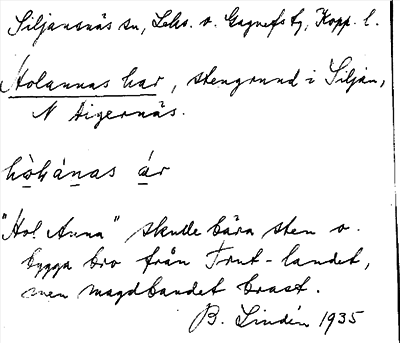 Siljansnäs sn, Leks. o. Gagnefs tg, Kopp. l.
Holannas har, stengrund i Siljan,
N Digernäs.
hòhánas ár
"Hol Anna" skulle bära sten o.
bygga bro från Trut-landet,
men magdbandet brast.
B. Lindén 1935